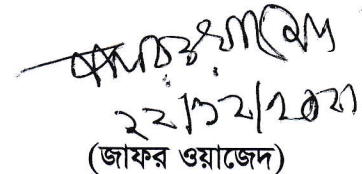 ২২/১২/২০২১
(জাফর ওয়াজেদ)